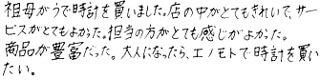 祖母がうで時計を買いました。店の中がとてもきれいで、サー
ビスがとてもよかった。担当の方がとても感じがよかった。
商品が豊富だった。大人になったら、エノモトで時計を買い
たい。